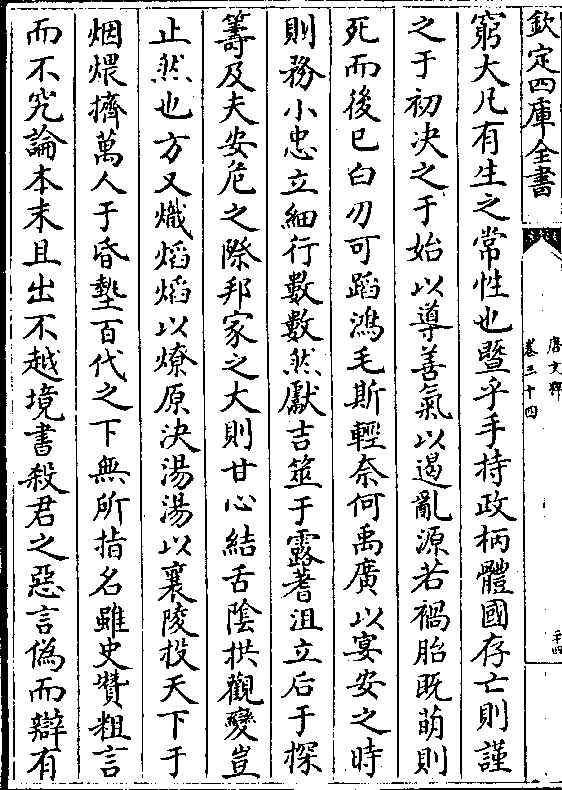 欽定四庫全書
唐文粹
卷三十四
二十四
窮大凡有生之常性也暨乎手持政柄體國存亡則謹
之于初决之于始以導善氣以遏亂源若禍胎既萌則
死而後已白刃可蹈鴻毛斯輕奈何禹廣以宴安之時
則務小忠立細行數數然獻吉筮于露蓍沮立后于探
籌及夫安危之際邦家之大則甘心結舌陰拱觀變豈
止然也方又熾熖熖以燎原决湯湯以襄陵投天下于
烟煨擠萬人于昏墊百代之下無所指名雖史贊粗言
而不究論本末且出不越境書殺君之惡言偽而辯有